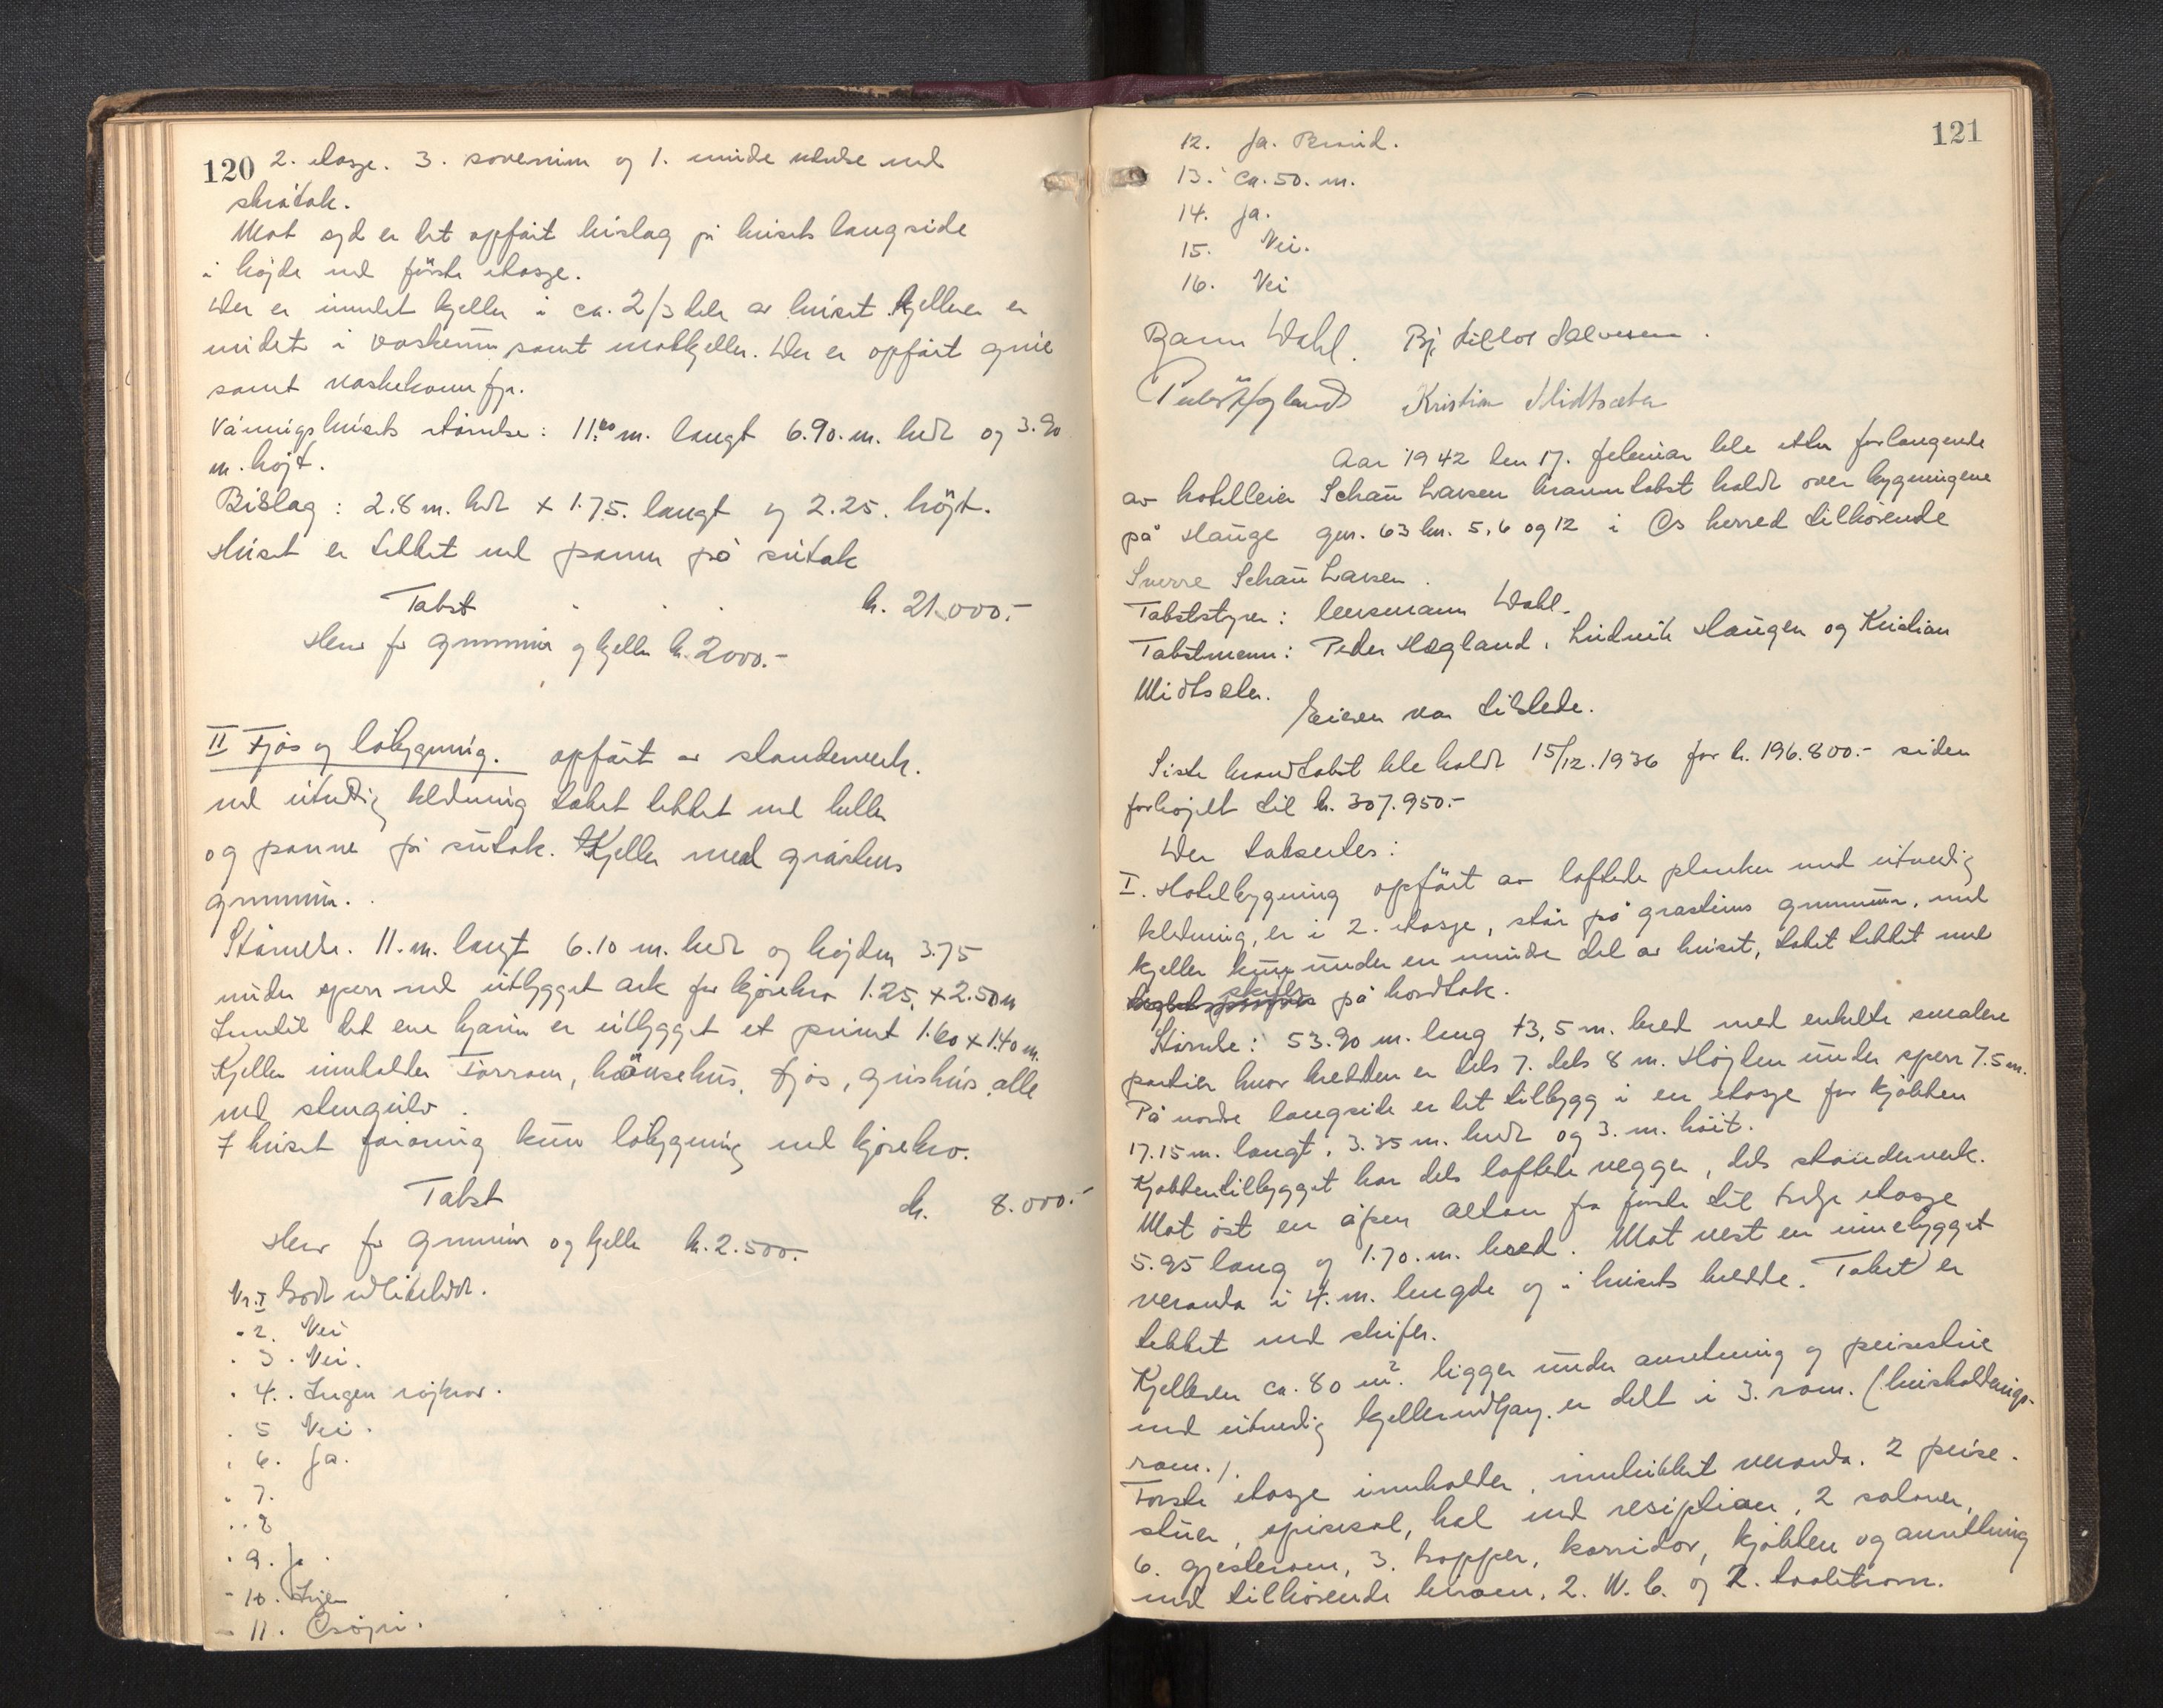 120
2. etasje. 3. soverum og 1. mindre med
skråtak.
Mot syd er det opført bislag på husets langside
i højde med første etasje.
Der er innredet kjeller i ca. 2/3 dele av huset. Kjelleren er
inndelt i vaskerum samt matkjeller. Der er opført grue
samt vaskekum fjr.
Våningshusets størrelse: 11.80 m. langt 6.90. m. bredt og 3.90
m. højt.
Bislag: 2.8 m. bredt x 1.75. langt og 2.25. højt.
Huset er tekket med panne på sutak
Takst kr. 21.000.-
Herav for grunnmur og kjeller kr. 2000.-
II Fjøs og løbygning. opført av standerverk.
med utvendig kledning taket tekket med heller
og panne på sutak. Kjeller med gråstens
grunnmur.
Størrelse. 11. m. langt 6.10 m. bredt og højden 3.75
under sperr med utbygget ark for kjørebro 1.25. x 2.50 m
Inntil det ene hjørne er utbygget et 1.60 x 1.40 m.
Kjeller innholder Tørrom, hønsehus, fjøs, grishus alle
med stengulv.
I huset forøvrig kun løbygning med kjørebro.
Takst kr. 8.000.-
Herav for grunnmur og kjeller kr. 2.500.-
Nr. I Godt vedlikeholdt.
" 2. Nei
" 3. Nei.
" 4. Ingen røjkrør.
" 5 Nei.
" 6. Ja.
" 7.
" 8
" 9. Ja.
" 10. Ingen
" 11. Osøyri.
121
12. Ja. Brønd.
13. Ca. 50. m.
14. Ja.
15. Nei.
16. Nei
Bjarne Wahl. Bj. Lillos Salvesen.
Peder Høgland Kristian Midtsæter
Aar 1942 den 17. februar ble etter forlangende
av hotelleier Schau Larsen branntakst holdt over bygningene
på Hauge gnr. 63 bnr. 5, 6 og 12 i Os herred tilhørende
Sverre Schau Larsen.
Takststyrer: lensmann Wahl.
Takstmenn: Peder Høgland, Ludvik Haugen og Kristian
Midtsæter.
Eieren var tilstede.
Siste brandtakst ble holdt 15/12. 1936 for kr. 196.800.- siden
forhøjet til kr. 307.950.-
Der taksertes:
I. Hotelbygning opført av laftede planker med utvendig
kledning, er i 2. etasje, står på gråstens grunnmur, med
kjeller kun under en mindre del av huset, taket tekket med
skifer på bordtak.
Størrelse: 53.90 m. lang 13,5 m. bred med enkelte smalere
partier hvor bredden er dels 7. dels 8 m. Højden under sperr 7.5 m.
På nordre langside er det tilbygg i en etasje for kjøkken
17.15 m. langt, 3.35 m. bredt og 3. m. høit.
Kjøkkentilbygget har dels laftede vegger, dels standerverk.
Mot øst en åpen altan fra første til tredje etasje
5.95 lang og 1.70. m. bred. Mot vest en innebygget
veranda i 4. m. lengde og i husets bredde. Taket er
tekket med skifer.
Kjelleren ca. 80 m². ligger under anretning og peisestue
med utvendig kjellernedgang. er delt i 3. rom. (husholdnings-
rom.).
Første etasje innholder, innebikket veranda. 2 peise-
stuer, spisesal, hal med resepsjon, 2 saloner,
6. gjesterom, 3. trapper, korridor, kjøkken og anretning
med tilhørende birom. 2. W.C. og 2. toalettrom.